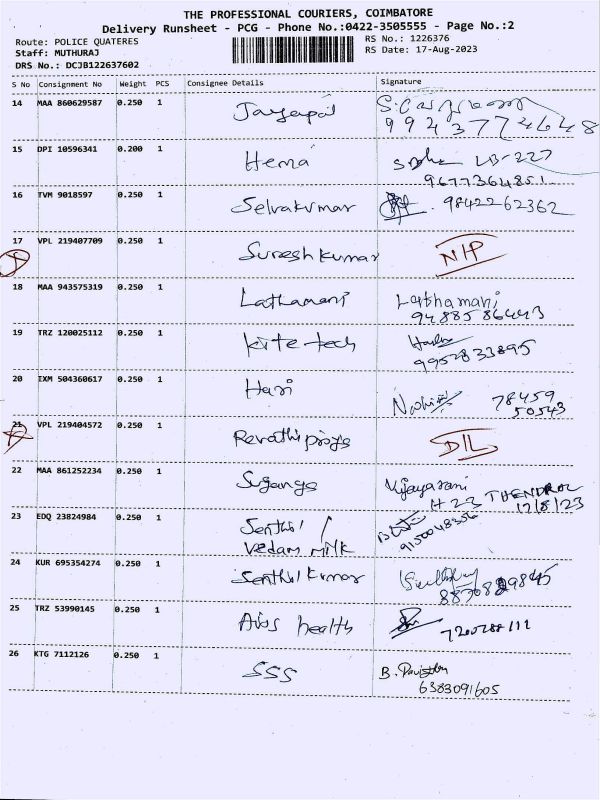 THE PROFESSIONAL COURIERS, COIMBATORE
Delivery Runsheet - PCG - Phone No.:0422-3505555 - Page No.:2
Route: POLICE QUATERES
RS No.: 1226376
Staff: MUTHURAJ
RS Date: 17-Aug-2023
DRS No.: DCJB122637602
S No Consignment No Weight PCS Consignee Details Signature
14 MAA 860629587 0.250 1 Jayapal
9943774648
15 DPI 10596341 0.200 1 Hema LB-227
9677364851
16 TVM 9018597 0.250 1 Selvakumar 9842262362
17 VPL 219407709 0.250 1 Suresh kumar N/P
18 MAA 943575319 0.250 1 Lathamani Lathamani
9488586443
19 TRZ 120025112 0.250 1 kite tech
9952833895
20 IXM 504360617 0.250 1 Hari 78459
50543
21 VPL 219404572 0.250 1 Revathi D/L
22 MAA 861252234 0.250 1 Vijayarani
H 23 THENDRAL
17/8/23
23 EDQ 23824984 0.250 1 Senthil /
vedam milk 9150048356
24 KUR 695354274 0.250 1 Senthil kumar
25 TRZ 53990145 0.250 1 health
7200288111
26 KTG 7112126 0.250 1 SSS B.
6383091605